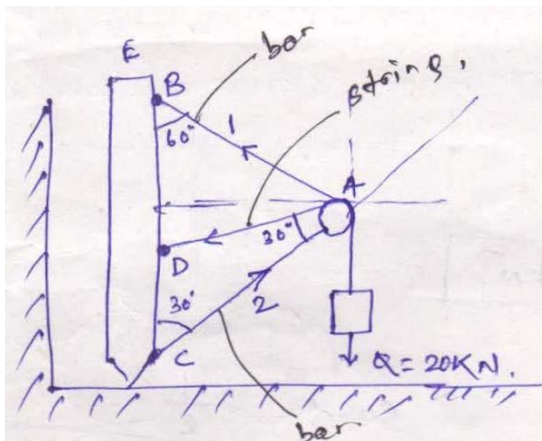 bar
E
B
string.
60°
1
A
30°
D
30°
2
C
Q = 20KN.
bar